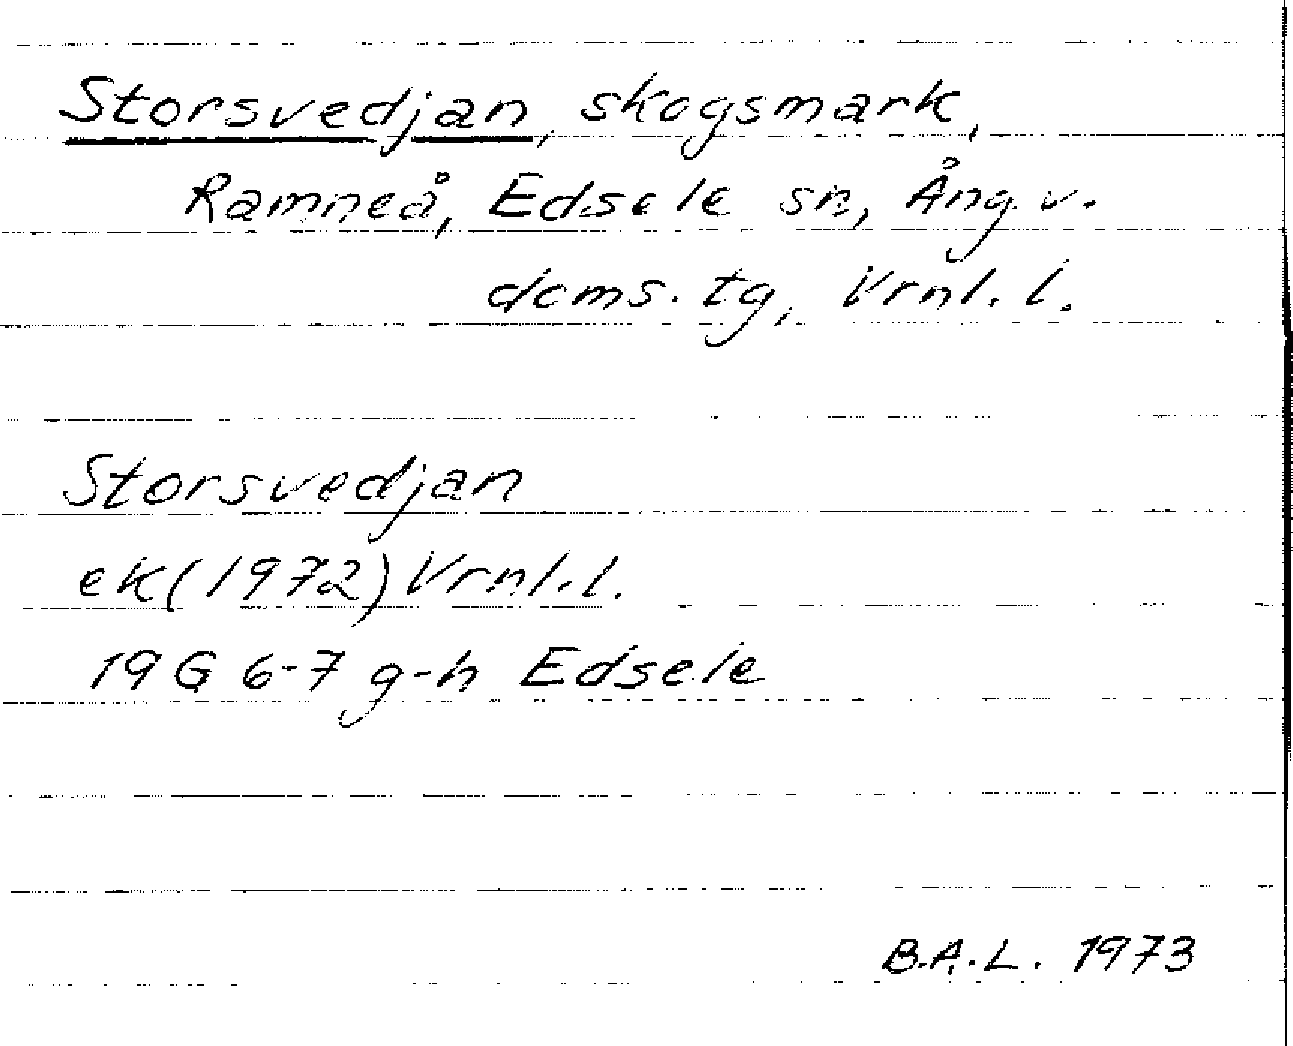 Storsvedjan, skogsmark,
Ramneå, Edsele sn, Ång. v.
doms. tg, Vrnl. l.
Storsvedjan
ek (1972) Vrnl. l.
19 G 6-7 g-h Edsele
B.A.L. 1973